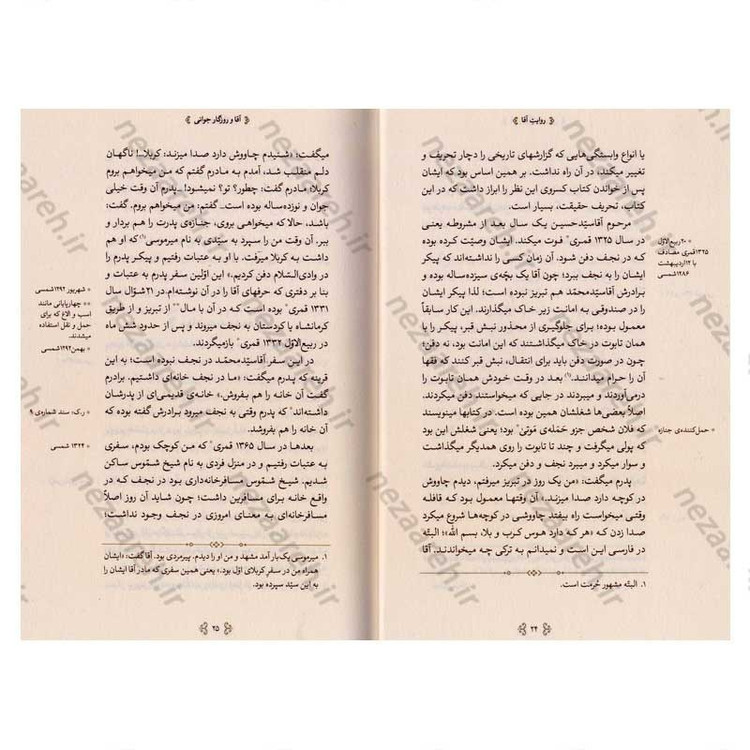 روایت آقا
یا انواع وابستگی‌هایی که گزارشهای تاریخی را دچار تحریف و
تغییر میکند، در آن راه نداشت. بر همین اساس بود که ایشان
پس از خواندن کتاب کسروی این نظر را ابراز داشت که در این
کتاب، تحریف حقیقت، بسیار است.
مرحوم آقاسیّدحسین یک سال بعد از مشروطه یعنی
در سال ۱۳۲۵ قمری* فوت میکند. ایشان وصیّت کرده بوده
که در نجف دفن شود، آن زمان کسی را نداشته‌اند که پیکر
ایشان را به نجف ببرد؛ چون آقا یک بچّه‌ی سیزده‌ساله بوده و
برادرش آقاسیّدمحمّد هم تبریز نبوده است؛ لذا پیکر ایشان
را در صندوقی به امانت زیر خاک میگذارند. این کار سابقاً
معمول بوده؛ برای جلوگیری از محذور نبش قبر، پیکر را با
همان تابوت در خاک میگذاشتند که این امانت بود، نه دفن؛
چون در صورت دفن باید برای انتقال، نبش قبر کنند که فقها
آن را حرام میدانند.(۱) بعد در وقت خودش همان تابوت را
درمی‌آوردند و میبردند در جایی که میخواستند دفن میکردند.
اصلاً بعضی‌ها شغلشان همین بوده است. در کتابها مینویسند
که فلان شخص جزو حَمَله‌ی مُوتیٰ* بود؛ یعنی شغلش این بود
که پولی میگرفت و چند تا تابوت را روی همدیگر میگذاشت
و سوار میکرد و میبرد نجف و دفن میکرد.
پدرم میگفت: «من یک روز در تبریز میرفتم، دیدم چاووش
در کوچه دارد صدا میزند.» آن وقتها معمول بود که قافله
وقتی میخواست راه بیفتد چاووشی در کوچه‌ها شروع میکرد
صدا زدن که «هر که دارد هوس کرب و بلا، بسم الله»؛ البتّه
در فارسی این است و نمیدانم به ترکی چه میخواندند. آقا
* ۲۰ ربیع‌الاوّل
۱۳۲۵ قمری مصادف
با ۱۲ اردیبهشت
۱۲۸۶ شمسی
* حمل‌کننده‌ی جنازه
۱. البتّه مشهور حُرمت است.
۲۴
آقا و روزگار جوانی
میگفت: «شنیدم چاووش دارد صدا میزند: کربلا! ناگهان
دلم منقلب شد، آمدم به مادرم گفتم که من میخواهم بروم
کربلا؛ مادرم گفت: چطور؟ تو؟ نمیشود!. پدرم آن وقت خیلی
جوان و نوزده‌ساله بوده است.. گفتم: من میخواهم بروم. گفت:
باشد، حالا که میخواهی بروی، جنازه‌ی پدرت را هم بردار و
ببر. آن وقت من را سپرد به سیّدی به نام میرموسی(۱) که او هم
داشت به کربلا میرفت. با او به عتبات رفتیم و پیکر پدرم را
در وادی‌السّلام دفن کردیم.» این اوّلین سفر پدرم به عتبات و
بنا بر دفتری که سفرهای آقا را در آن نوشته‌ام، در ۲۱ شوّال سال
۱۳۳۱ قمری* بوده است که در آن با مال** از تبریز و از طریق
کرمانشاه یا کردستان به نجف میروند و پس از حدود شش ماه
در ربیع‌الاوّل ۱۳۳۲ قمری* بازمیگردند.
در این سفر آقاسیّدمحمّد در نجف نبوده است؛ به این
قرینه که پدرم میگفت: «ما در نجف خانه‌ای داشتیم. برادرم
گفت آن خانه را هم بفروش.» خانه‌ی قدیمی‌ای از پدرشان
داشته‌اند* که پدرم وقتی به نجف میرود برادرش گفته بوده که
آن خانه را هم بفروشد.
بعدها در سال ۱۳۶۵ قمری* که من کوچک بودم، سفری
به عتبات رفتیم و در منزل فردی به نام شیخ شمّوس ساکن
شدیم. شیخ شمّوس مسافرخانه‌داری بود در نجف که در
واقع خانه برای مسافرین داشت؛ چون شاید آن روز اصلاً
مسافرخانه‌ای به معنای امروزی در نجف وجود نداشت؛
* شهریور ۱۲۹۲ شمسی
** چهارپایانی مانند
اسب و الاغ که برای
حمل و نقل استفاده
میشدند.
* بهمن ۱۲۹۲ شمسی
* رک: سند شماره‌ی ۹
* ۱۳۲۴ شمسی
۱. میرموسی یک بار آمد مشهد و من او را دیدم. پیرمردی بود. آقا گفت: «ایشان
همراه من در سفر کربلای اوّل بود.» یعنی همین سفری که مادر آقا ایشان را
به این سیّد سپرده بود.
۲۵
nezaareh.ir